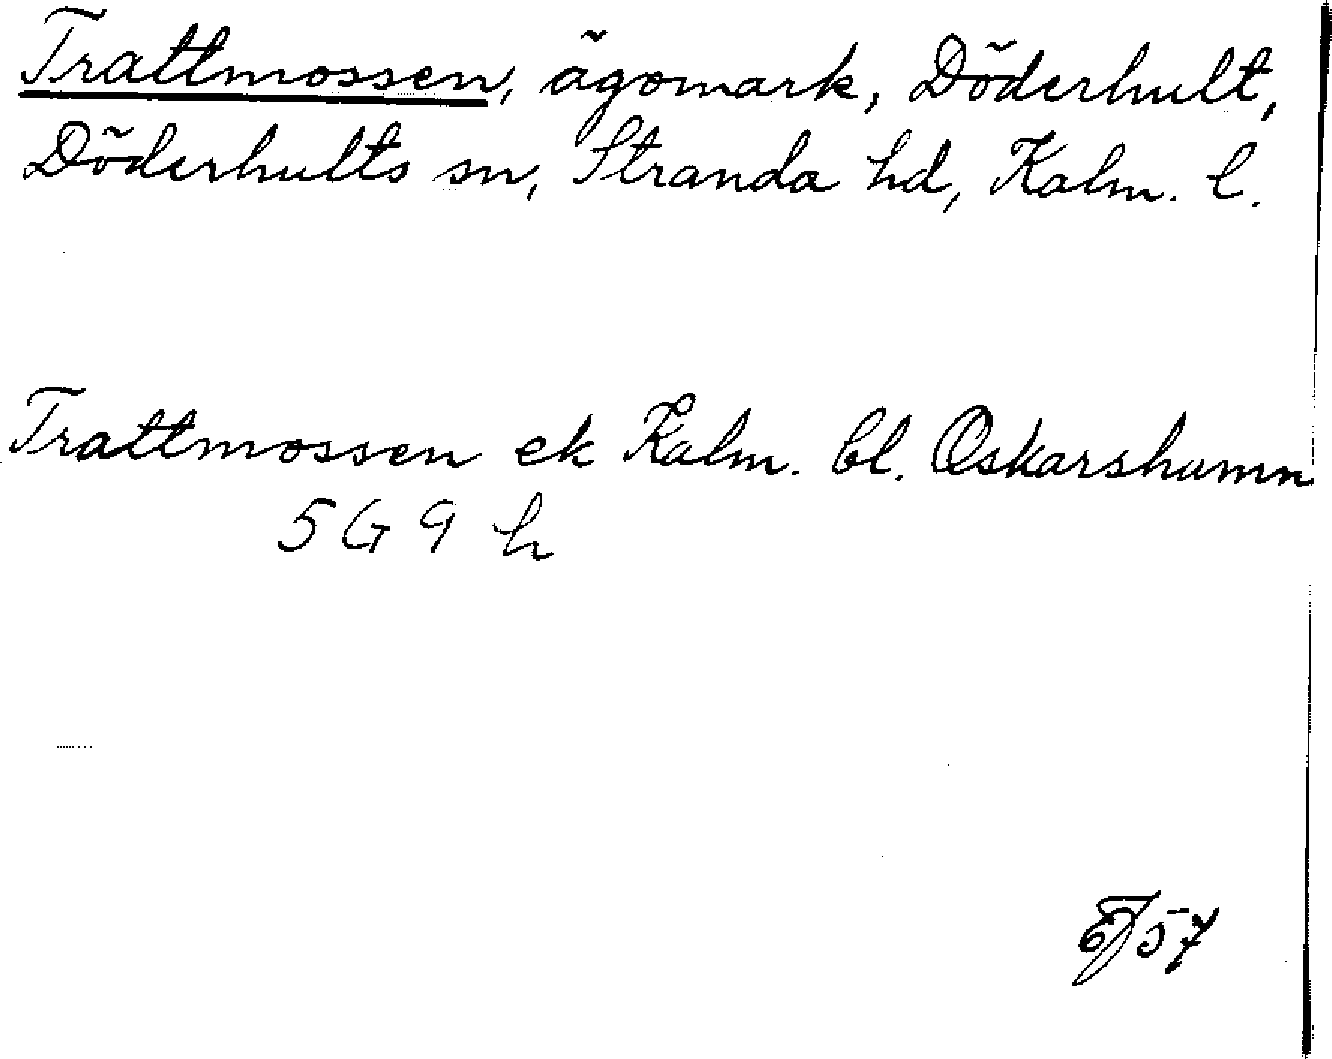 Trattmossen, ägomark, Döderhult,
Döderhults sn, Stranda hd, Kalm. l.
Trattmossen ek Kalm. bl. Oskarshamn
5 G 9 h
57